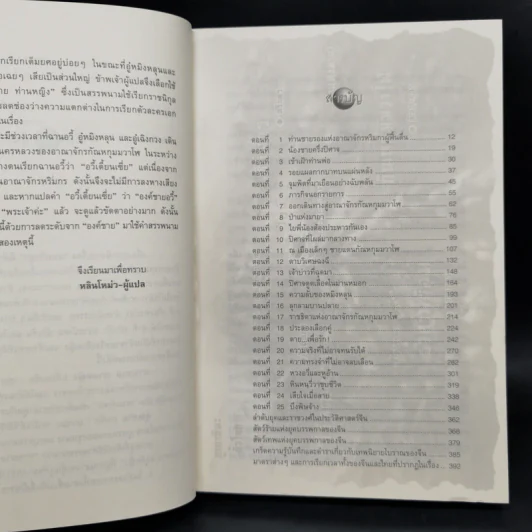 กเรียกเต็มยศอยู่บ่อยๆ ในขณะที่อู่หมิงหลุนและ
เฉยๆ เสียเป็นส่วนใหญ่ ข้าพเจ้าผู้แปลจึงเลือกใช้
าย ท่านหญิง" ซึ่งเป็นสรรพนามใช้เรียกราชนิกูล
ลดช่องว่างความแตกต่างในการเรียกตัวละครเอก
นเรื่อง
ะมีช่วงเวลาที่ฉานอวี้ อู่หมิงหลุน และอู่เฉิงกวง เดิน
นครหลวงของอาณาจักรกัณหกุมมวาโพ ในระหว่าง
างตนเรียกฉานอวี้ว่า "อวี้เตี้ยนเซี่ย" แต่เนื่องจาก
นอาณาจักรหริมกร ดังนั้นจึงจะไม่มีการลงหางเสียง
และหากแปลคำ "อวี้เตี้ยนเซี่ย" ว่า "องค์ชายอวี้"
"พระเจ้าค่ะ" แล้ว จะดูแล้วขัดตาอย่างมาก ดังนั้น
นี้ด้วยการลดระดับจาก "องค์ชาย" มาใช้คำสรรพนาม
สองเหตุนี้
จึงเรียนมาเพื่อทราบ
หลินโหม่ว-ผู้แปล
สารบัญ
ตอนที่ 1 ท่านชายรองแห่งอาณาจักรหริมกรผู้ฟื้นตื่น 12
ตอนที่ 2 น้องชายครึ่งปีศาจ 19
ตอนที่ 3 เข้าเฝ้าท่านพ่อ 30
ตอนที่ 4 รอยแผลกากบาทบนแผ่นหลัง 37
ตอนที่ 5 จูมพิตที่มาเยือนอย่างฉับพลัน 45
ตอนที่ 6 ภารกิจนอกวายการ 55
ตอนที่ 7 ออกเดินทางสู่อาณาจักรกัณหกุมมวาโพ 62
ตอนที่ 8 ป่าแห่งมายา 76
ตอนที่ 9 ไยพี่น้องต้องประหารกันเอง 85
ตอนที่ 10 ปีศาจที่โผล่มากลางทาง 97
ตอนที่ 11 ณ เมืองเล็กๆ ชายแดนกัณหกุมมวาโพ 107
ตอนที่ 12 ดาบวิเศษฉงฉี 132
ตอนที่ 13 เจ้าบ่าวที่ฉุดมา 148
ตอนที่ 14 ปีศาจดูดเลือดในม่านหมอก 164
ตอนที่ 15 ความลับของหมิงหลุน 183
ตอนที่ 16 ลุกลามบานปลาย 201
ตอนที่ 17 ราชธิดาแห่งอาณาจักรกัณหกุมมวาโพ 214
ตอนที่ 18 ประลองเลือกคู่ 224
ตอนที่ 19 ตาย...เพื่อรัก! 242
ตอนที่ 20 ความจริงที่ไม่อาจทนรับได้ 270
ตอนที่ 21 ความทรงจำที่ไม่อาจลบเลือน 282
ตอนที่ 22 หวงอวี้และพูอ้าน 301
ตอนที่ 23 หินหนวี่วาชุบชีวิต 324
ตอนที่ 24 เสียใจเมื่อสาย 338
ตอนที่ 25 บึงพิษจ้าง 345
ลำดับยุคและราชวงศ์ในประวัติศาสตร์จีน 362
สัตว์ร้ายแห่งยุคบรรพกาลของจีน 366
สัตว์เทพแห่งยุคบรรพกาลของจีน 379
เกร็ดความรู้บันทึกและตำราเกี่ยวกับเทพนิยายโบราณของจีน 385
มาตราต่างๆ และการเรียกเวลาทั้งของจีนและไทยที่ปรากฏในเรื่อง 392